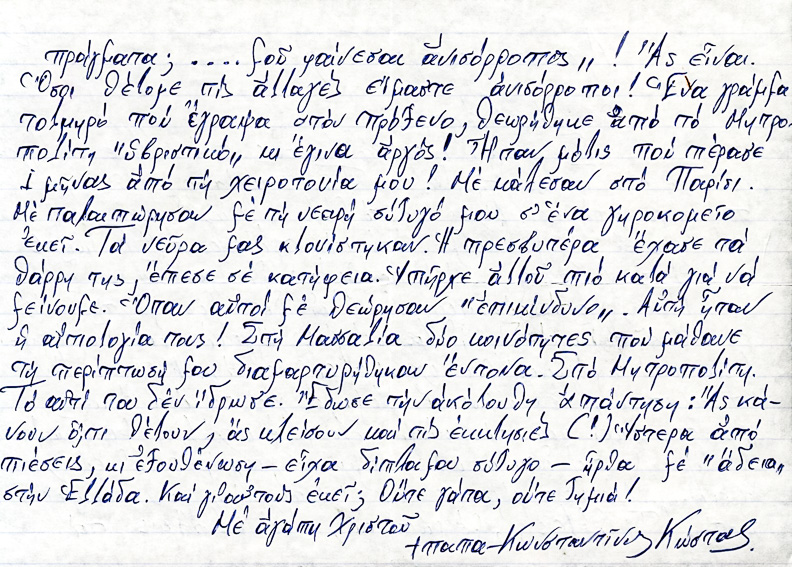 πράγματα; .... μοῦ φαίνεσαι ἀνισόρροπος„ ! Ἄς εἶναι.
Ὅσοι θέλομε τίς ἀλλαγές εἴμαστε ἀνισόρροποι! Ἕνα γράμμα
τολμηρό πού ἔγραψα στόν πρόξενο, θεωρήθηκε ἀπό τό Μητρο-
πολίτη "ὑβριστικό„ κι ἔγινα ἀργός! Ἦταν μόλις πού πέρασε
1 μῆνας ἀπό τή χειροτονία μου! Μέ κάλεσαν στό Παρίσι.
Μέ ταλαιπώρησαν μέ τή νεαρή σύζυγό μου σ' ἕνα γηροκομεῖο
ἐκεῖ. Τά νεῦρα μας κλονίστηκαν. Ἡ πρεσβυτέρα ἔχασε τά
θάρρη της, ἔπεσε σέ κατήφεια. Ὑπῆρχε ἀλλοῦ πιό κατά γιά νά
μείνουμε. Ὅταν αὐτοί μέ θεώρησαν "ἐπικίνδυνο„. Αὐτή ἦταν
ἡ αἰτιολογία τους! Στή Μασσαλία δύο κοινότητες πού μάθανε
τή περίπτωσή μου διαμαρτυρήθηκαν ἔντονα. Στό Μητροπολίτη.
Τό αὐτί του δέν ἵδρωσε. Ἔδωσε τήν ἀκόλουθη ἀπάντηση: Ἄς κά-
νουν ὅ,τι θέλουν, ἄς κλείσουν καί τίς ἐκκλησιές (!) Ὕστερα ἀπό
πιέσεις, κι ἐξουθένωση – εἶχα δίπλα μου σύζυγο – ἦρθα μέ "ἄδεια„
στήν Ἑλλάδα. Καί γι' αὐτούς ἐκεῖ; Οὔτε γάτα, οὔτε ζημιά!
Μέ ἀγάπη Χριστοῦ
+παπα-Κωνσταντῖνος Κώστας.